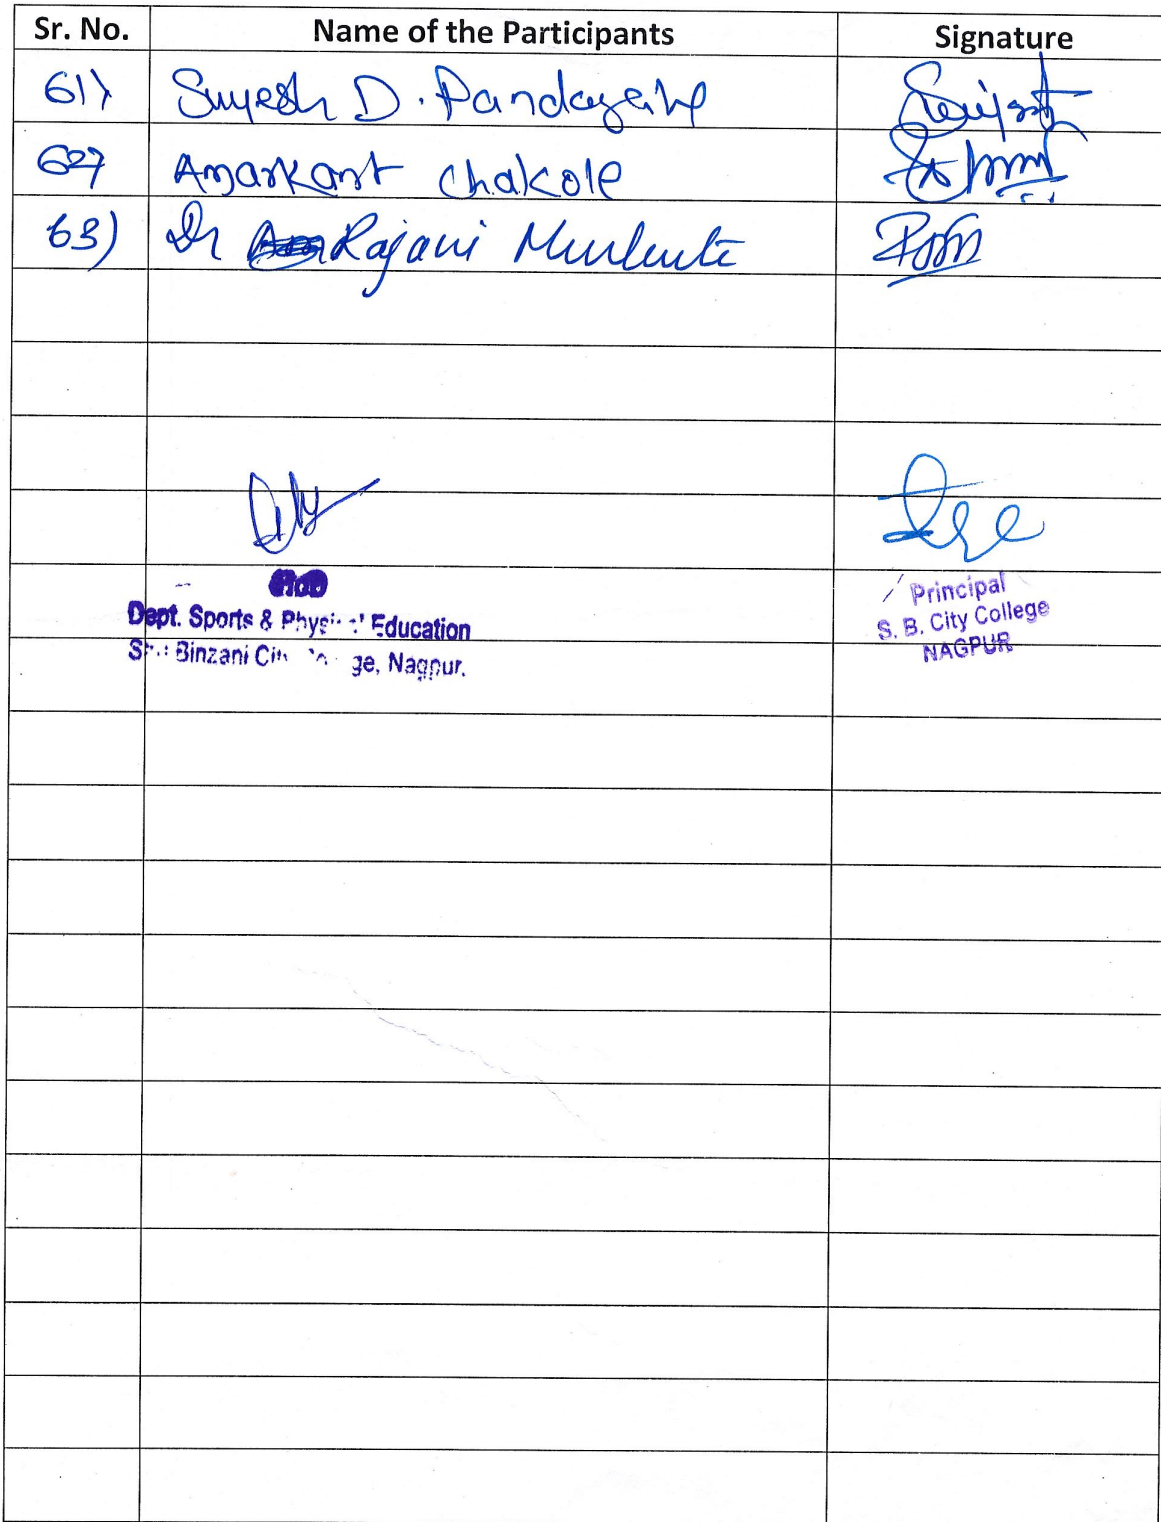 Sr. No. Name of the Participants Signature
61) Suyesh D. Pandagale
62) Amarkant Chakole
63) Dr Rajani Murkute
HOD
Dept. Sports & Education
Binzani Nagpur.
Principal
S. B. City College
NAGPUR